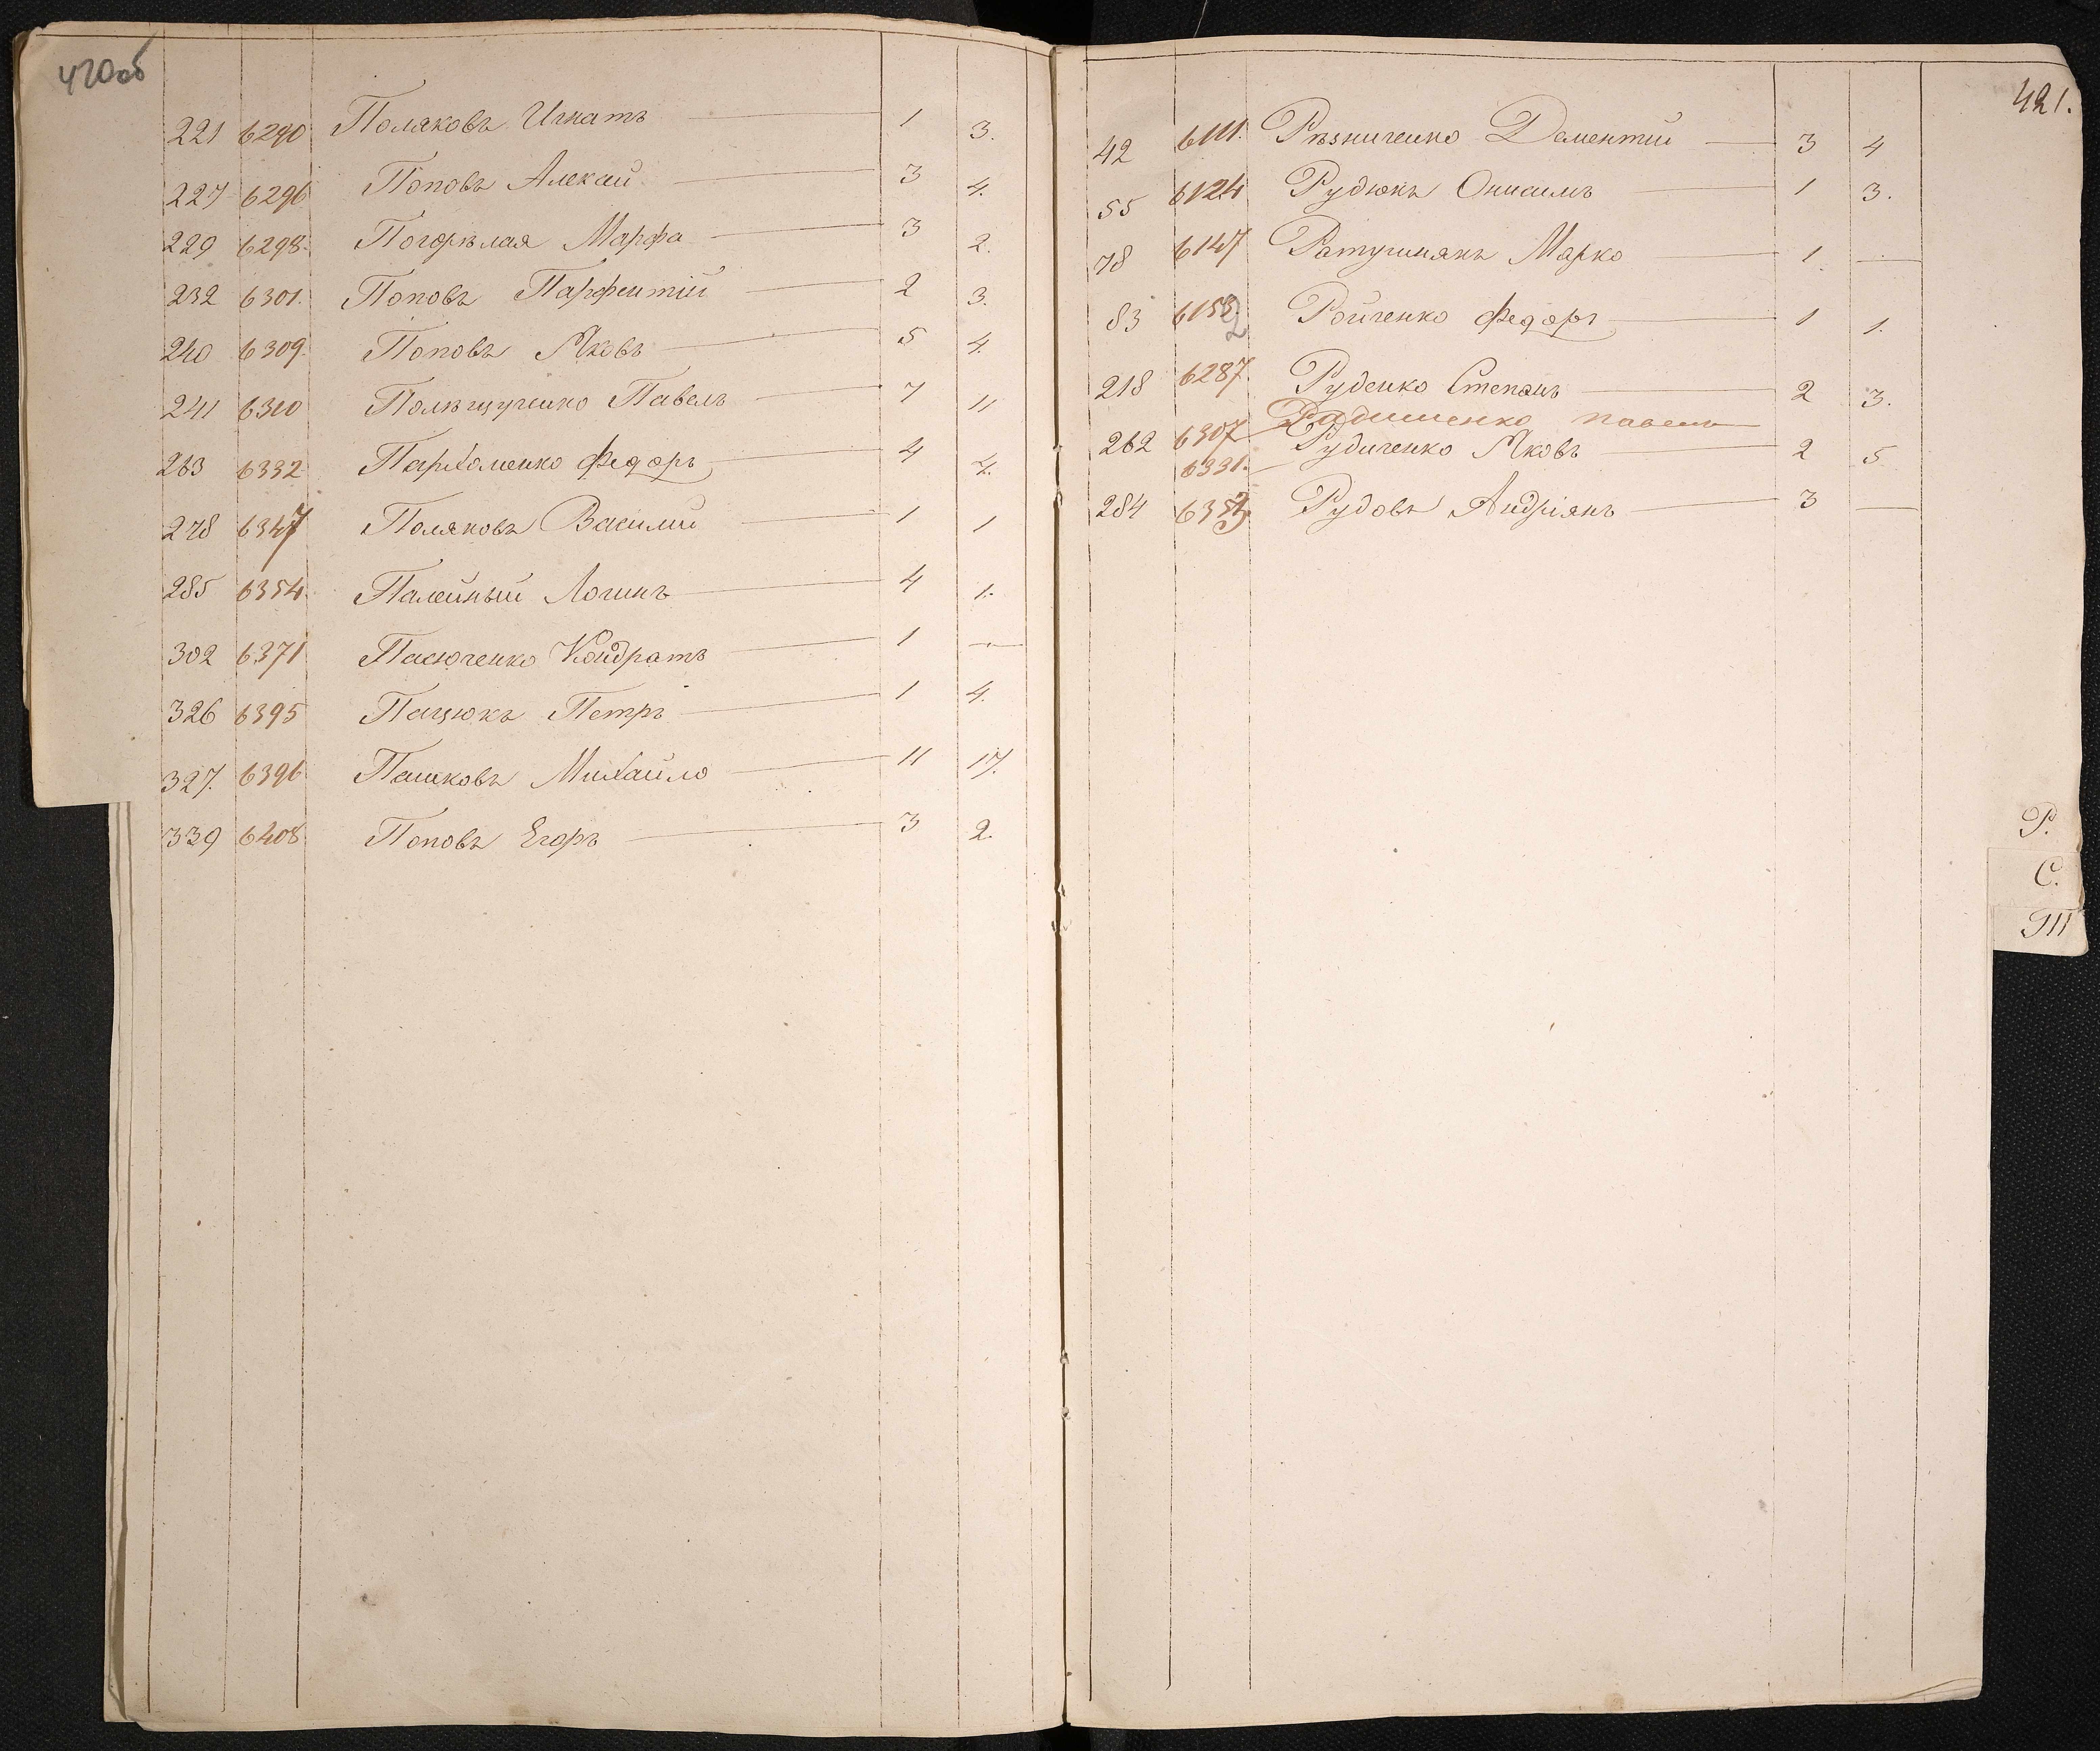 420об
221 6290 Поляковъ Игнатъ 1 3.
227 6296 Поповъ Алексей 3 4.
229 6298. Погорѣлая Марфа 3 2.
232 6301. Поповъ Парфентій 2 3.
240 6309. Поповъ Яковъ 5 4.
241 6310 Павелъ 7 11
263 6332 Пархоменко Федоръ 4 4.
278 6347 Поляковъ Василий 1 1
285 6354. Логинъ 4 1.
302 6371 Пасюченко Кондратъ 1 —
326 6395 Пацюкъ Петръ 1 4.
327. 6396 Пашковъ Михайло 11 17.
339 6408 Поповъ Егоръ 3 2.
421.
42 6111. Рѣзниченко Дементий 3 4
55 6124 Рудюкъ Онисимъ 1 3.
78 6147 Ратушнякъ Марко 1. —
83 6152 Ройченко Федоръ 1 1.
218 6287. Руденко Степанъ 2 3.
6307 Павелъ
262 6331. Рудиченко Яковъ 2 5
284 6353 Рудовъ Андріянъ 3 —
Р.
С.